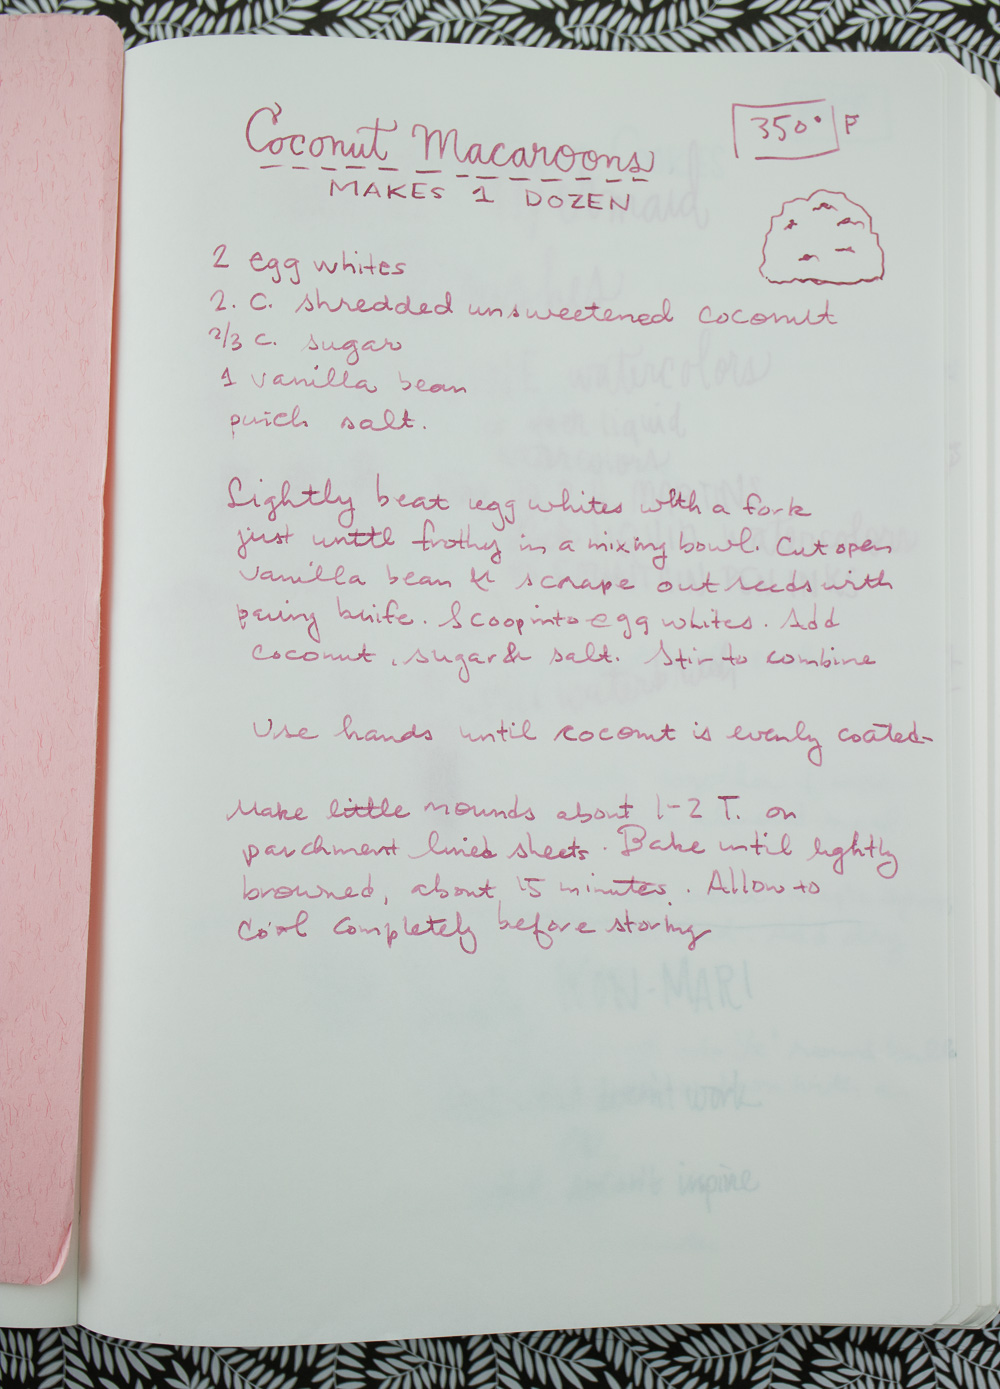 Coconut Macaroons
350° F
MAKES 1 DOZEN
2 egg whites
2. C. shredded unsweetened coconut
2/3 c. sugar
1 vanilla bean
pinch salt.
Lightly beat egg whites with a fork
just until frothy in a mixing bowl. Cut open
vanilla bean & scrape out seeds with
paring knife. Scoop into egg whites. Add
coconut, sugar & salt. Stir to combine
Use hands until coconut is evenly coated-
Make little mounds about 1-2 T. on
parchment lined sheets. Bake until lightly
browned, about 15 minutes. Allow to
cool completely before storing